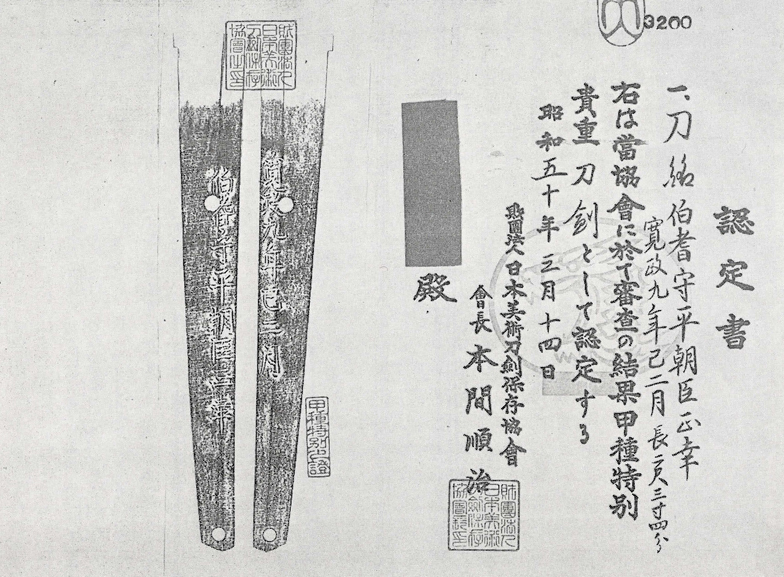 3200
認定書
一、刀 銘 伯耆守平朝臣正幸
寛政九年己二月 長二尺三寸四分
右は當協會に於て審査の結果甲種特別
貴重刀剣として認定する
昭和五十年三月十四日
財團法人日本美術刀剣保存協會
會長 本間順治
殿
財團法人日本美術刀剣保存協會
甲種特別之證
伯耆守平朝臣正幸
寛政九年巳二月